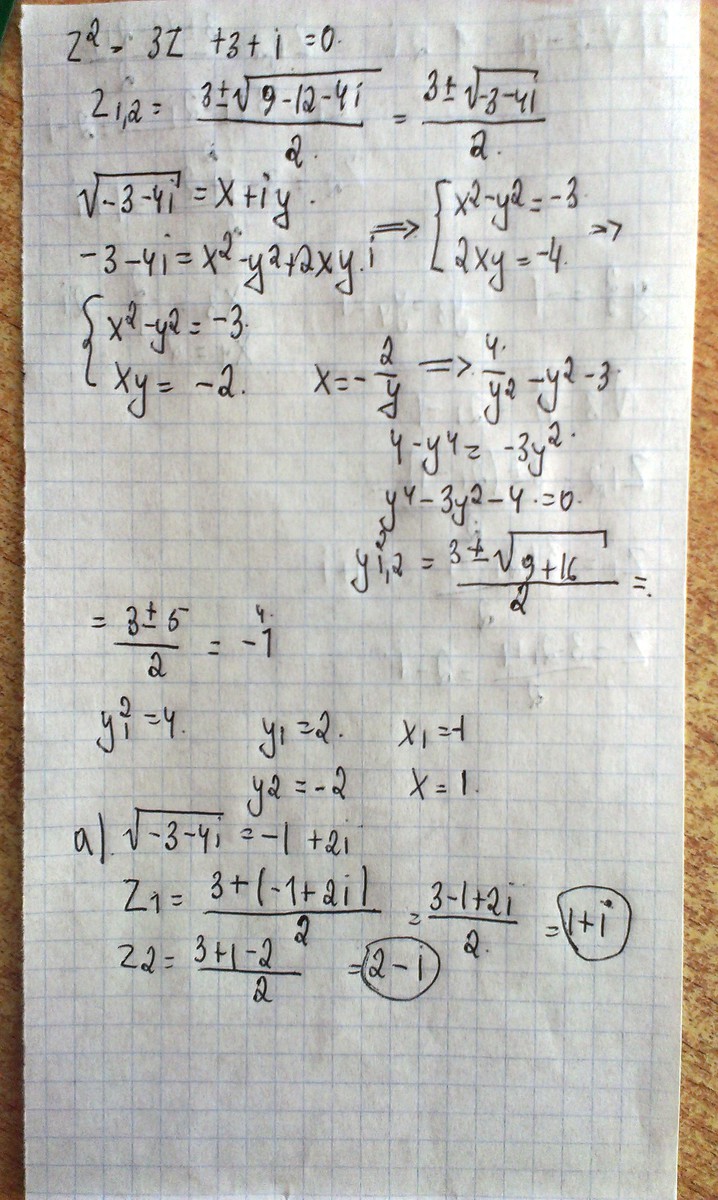 z² - 3z + 3 + i = 0.
z₁,₂ = (3 ± √(9-12-4i))/2. = (3 ± √(-3-4i))/2.
√(-3-4i) = x + iy.
-3-4i = x² - y² + 2xy.i ⟹ { x² - y² = -3 2xy = -4. ⟹
{ x² - y² = -3.
xy = -2. x = -2/y ⟹ 4/y² - y² - 3.
4 - y⁴ = -3y².
y⁴ - 3y² - 4 = 0.
y²₁,₂ = (3 ± √(9+16))/2 =
= (3 ± 5)/2 = 4. -1
y₁² = 4. y₁ = 2. x₁ = -1
y2 = -2 x = 1.
a). √(-3-4i) = -1 + 2i
z₁ = (3 + (-1+2i))/2 = (3-1+2i)/2. = 1+i
z₂ = (3+1-2)/2 = 2-i